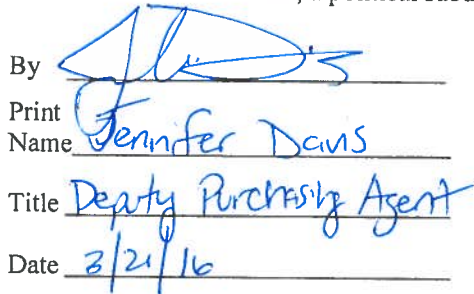 , a political
By
Print
Name Jennifer Davis
Title Deputy Purchasing Agent
Date 3/21/16